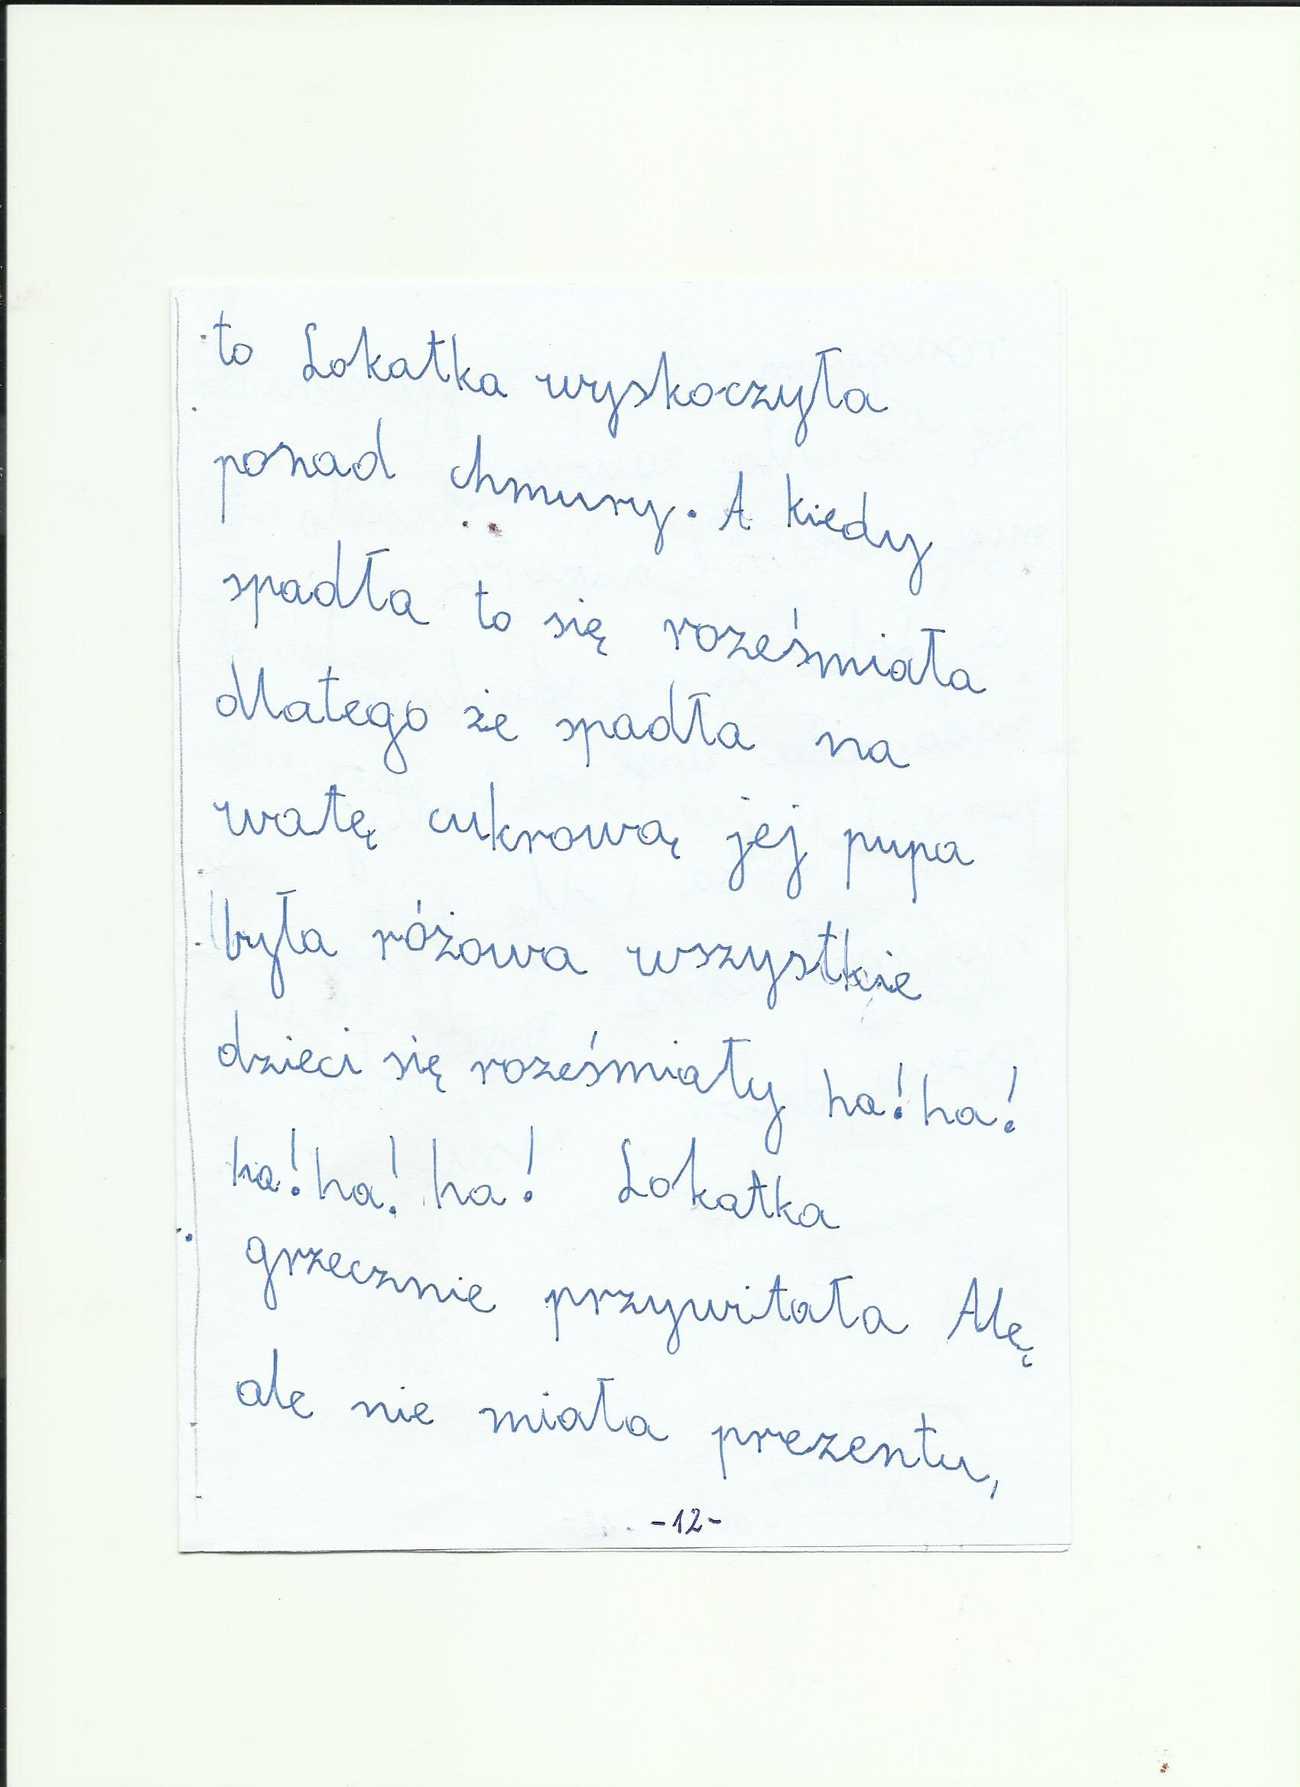 to Lokatka wyskoczyła
ponad chmury. A kiedy
spadła to się roześmiała
dlatego że spadła na
watę cukrową jej pupa
była różowa wszystkie
dzieci się roześmiały ha! ha!
ha! ha! ha! Lokatka
grzecznie przywitała Alę
ale nie miała prezentu,
-12-